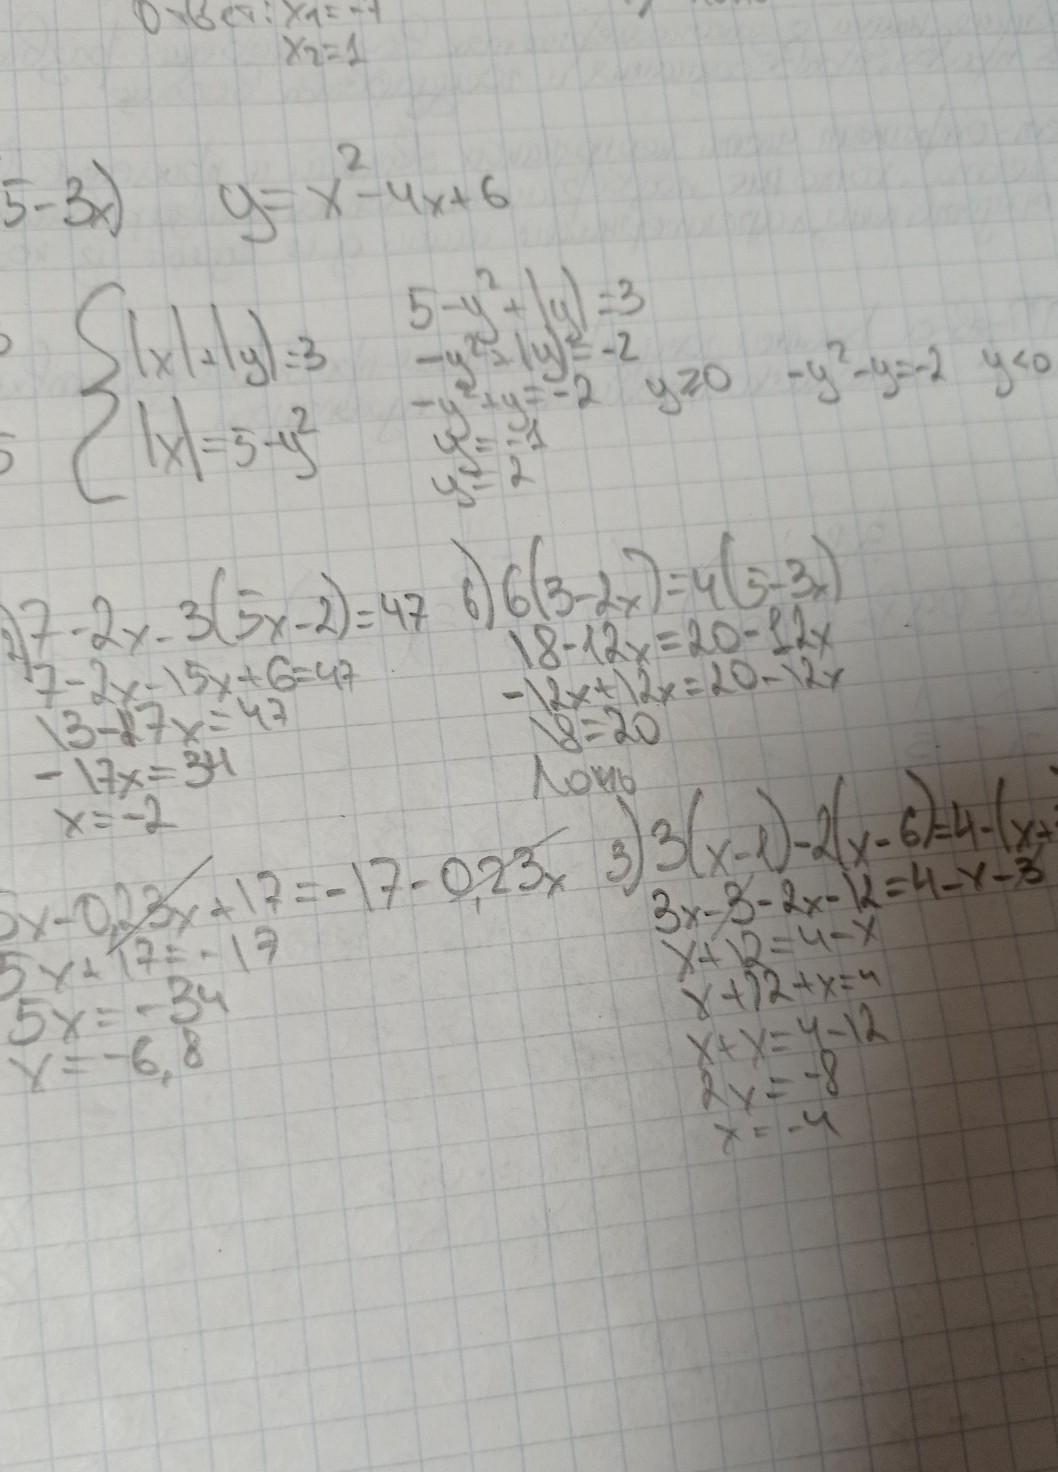 Ответ: x₁=-1
x₂=1
5-3x) y=x²-4x+6
{|x|+|y|=3
|x|=5-y²
5-y²+|y|=3
-y²+|y|=-2
-y²+y=-2 y≥0 -y²-y=-2 y<0
y=-1
y=2
7-2x-3(5x-2)=47
7-2x-15x+6=47
13-17x=47
-17x=34
x=-2
6) 6(3-2x)=4(5-3x)
18-12x=20-12x
-12x+12x=20-12x
18=20
Ложь
5x-0,23x+17=-17-0,23x
5x+17=-17
5x=-34
x=-6,8
3) 3(x-1)-2(x-6)=4-(x+
3x-3-2x-12=4-x-3
x+12=4-x
x+12+x=4
x+x=4-12
2x=-8
x=-4